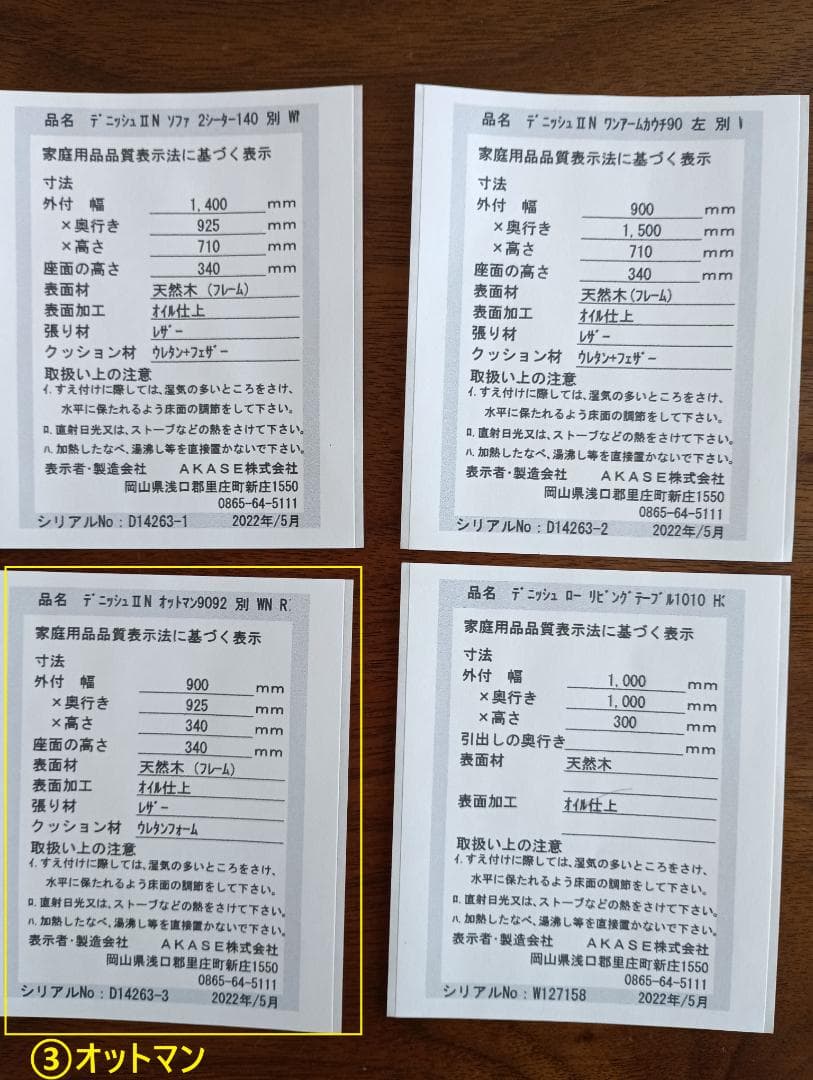 品名 デニッシュⅡN ソファ 2シーター140 別
家庭用品品質表示法に基づく表示
寸法
外付 幅 1,400 mm
×奥行き 925 mm
×高さ 710 mm
座面の高さ 340 mm
表面材 天然木 (フレーム)
表面加工 オイル仕上
張り材 レザー
クッション材 ウレタン+フェザー
取扱い上の注意
イ.すえ付けに際しては、湿気の多いところをさけ、
水平に保たれるよう床面の調節をして下さい。
ロ.直射日光又は、ストーブなどの熱をさけて下さい。
ハ.加熱したなべ、湯沸し等を直接置かないで下さい。
表示者・製造会社 AKASE株式会社
岡山県浅口郡里庄町新庄1550
0865-64-5111
シリアルNo:D14263-1 2022年/5月
品名 デニッシュⅡN ワンアームカウチ90 左 別
家庭用品品質表示法に基づく表示
寸法
外付 幅 900 mm
×奥行き 1,500 mm
×高さ 710 mm
座面の高さ 340 mm
表面材 天然木(フレーム)
表面加工 オイル仕上
張り材 レザー
クッション材 ウレタン+フェザー
取扱い上の注意
イ.すえ付けに際しては、湿気の多いところをさけ、
水平に保たれるよう床面の調節をして下さい。
ロ.直射日光又は、ストーブなどの熱をさけて下さい。
ハ.加熱したなべ、湯沸し等を直接置かないで下さい。
表示者・製造会社 AKASE株式会社
岡山県浅口郡里庄町新庄1550
0865-64-5111
シリアルNo:D14263-2 2022年/5月
品名 デニッシュⅡN オットマン9092 別 WN
家庭用品品質表示法に基づく表示
寸法
外付 幅 900 mm
×奥行き 925 mm
×高さ 340 mm
座面の高さ 340 mm
表面材 天然木 (フレーム)
表面加工 オイル仕上
張り材 レザー
クッション材 ウレタンフォーム
取扱い上の注意
イ.すえ付けに際しては、湿気の多いところをさけ、
水平に保たれるよう床面の調節をして下さい。
ロ.直射日光又は、ストーブなどの熱をさけて下さい。
ハ.加熱したなべ、湯沸し等を直接置かないで下さい。
表示者・製造会社 AKASE株式会社
岡山県浅口郡里庄町新庄1550
0865-64-5111
シリアルNo:D14263-3 2022年/5月
③オットマン
品名 デニッシュ ロー リビングテーブル1010
家庭用品品質表示法に基づく表示
寸法
外付 幅 1,000 mm
×奥行き 1,000 mm
×高さ 300 mm
引出しの奥行き mm
表面材 天然木
表面加工 オイル仕上
取扱い上の注意
イ.すえ付けに際しては、湿気の多いところをさけ、
水平に保たれるよう床面の調節をして下さい。
ロ.直射日光又は、ストーブなどの熱をさけて下さい。
ハ.加熱したなべ、湯沸し等を直接置かないで下さい。
表示者・製造会社 AKASE株式会社
岡山県浅口郡里庄町新庄1550
0865-64-5111
シリアルNo:W127158 2022年/5月